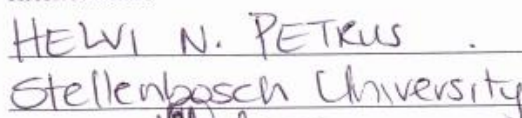 HELVI N. PETRUS.
Stellenbosch University